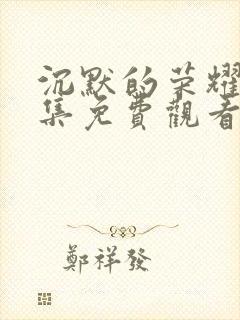 沉默的荣耀
集免費觀看
鄭祥發